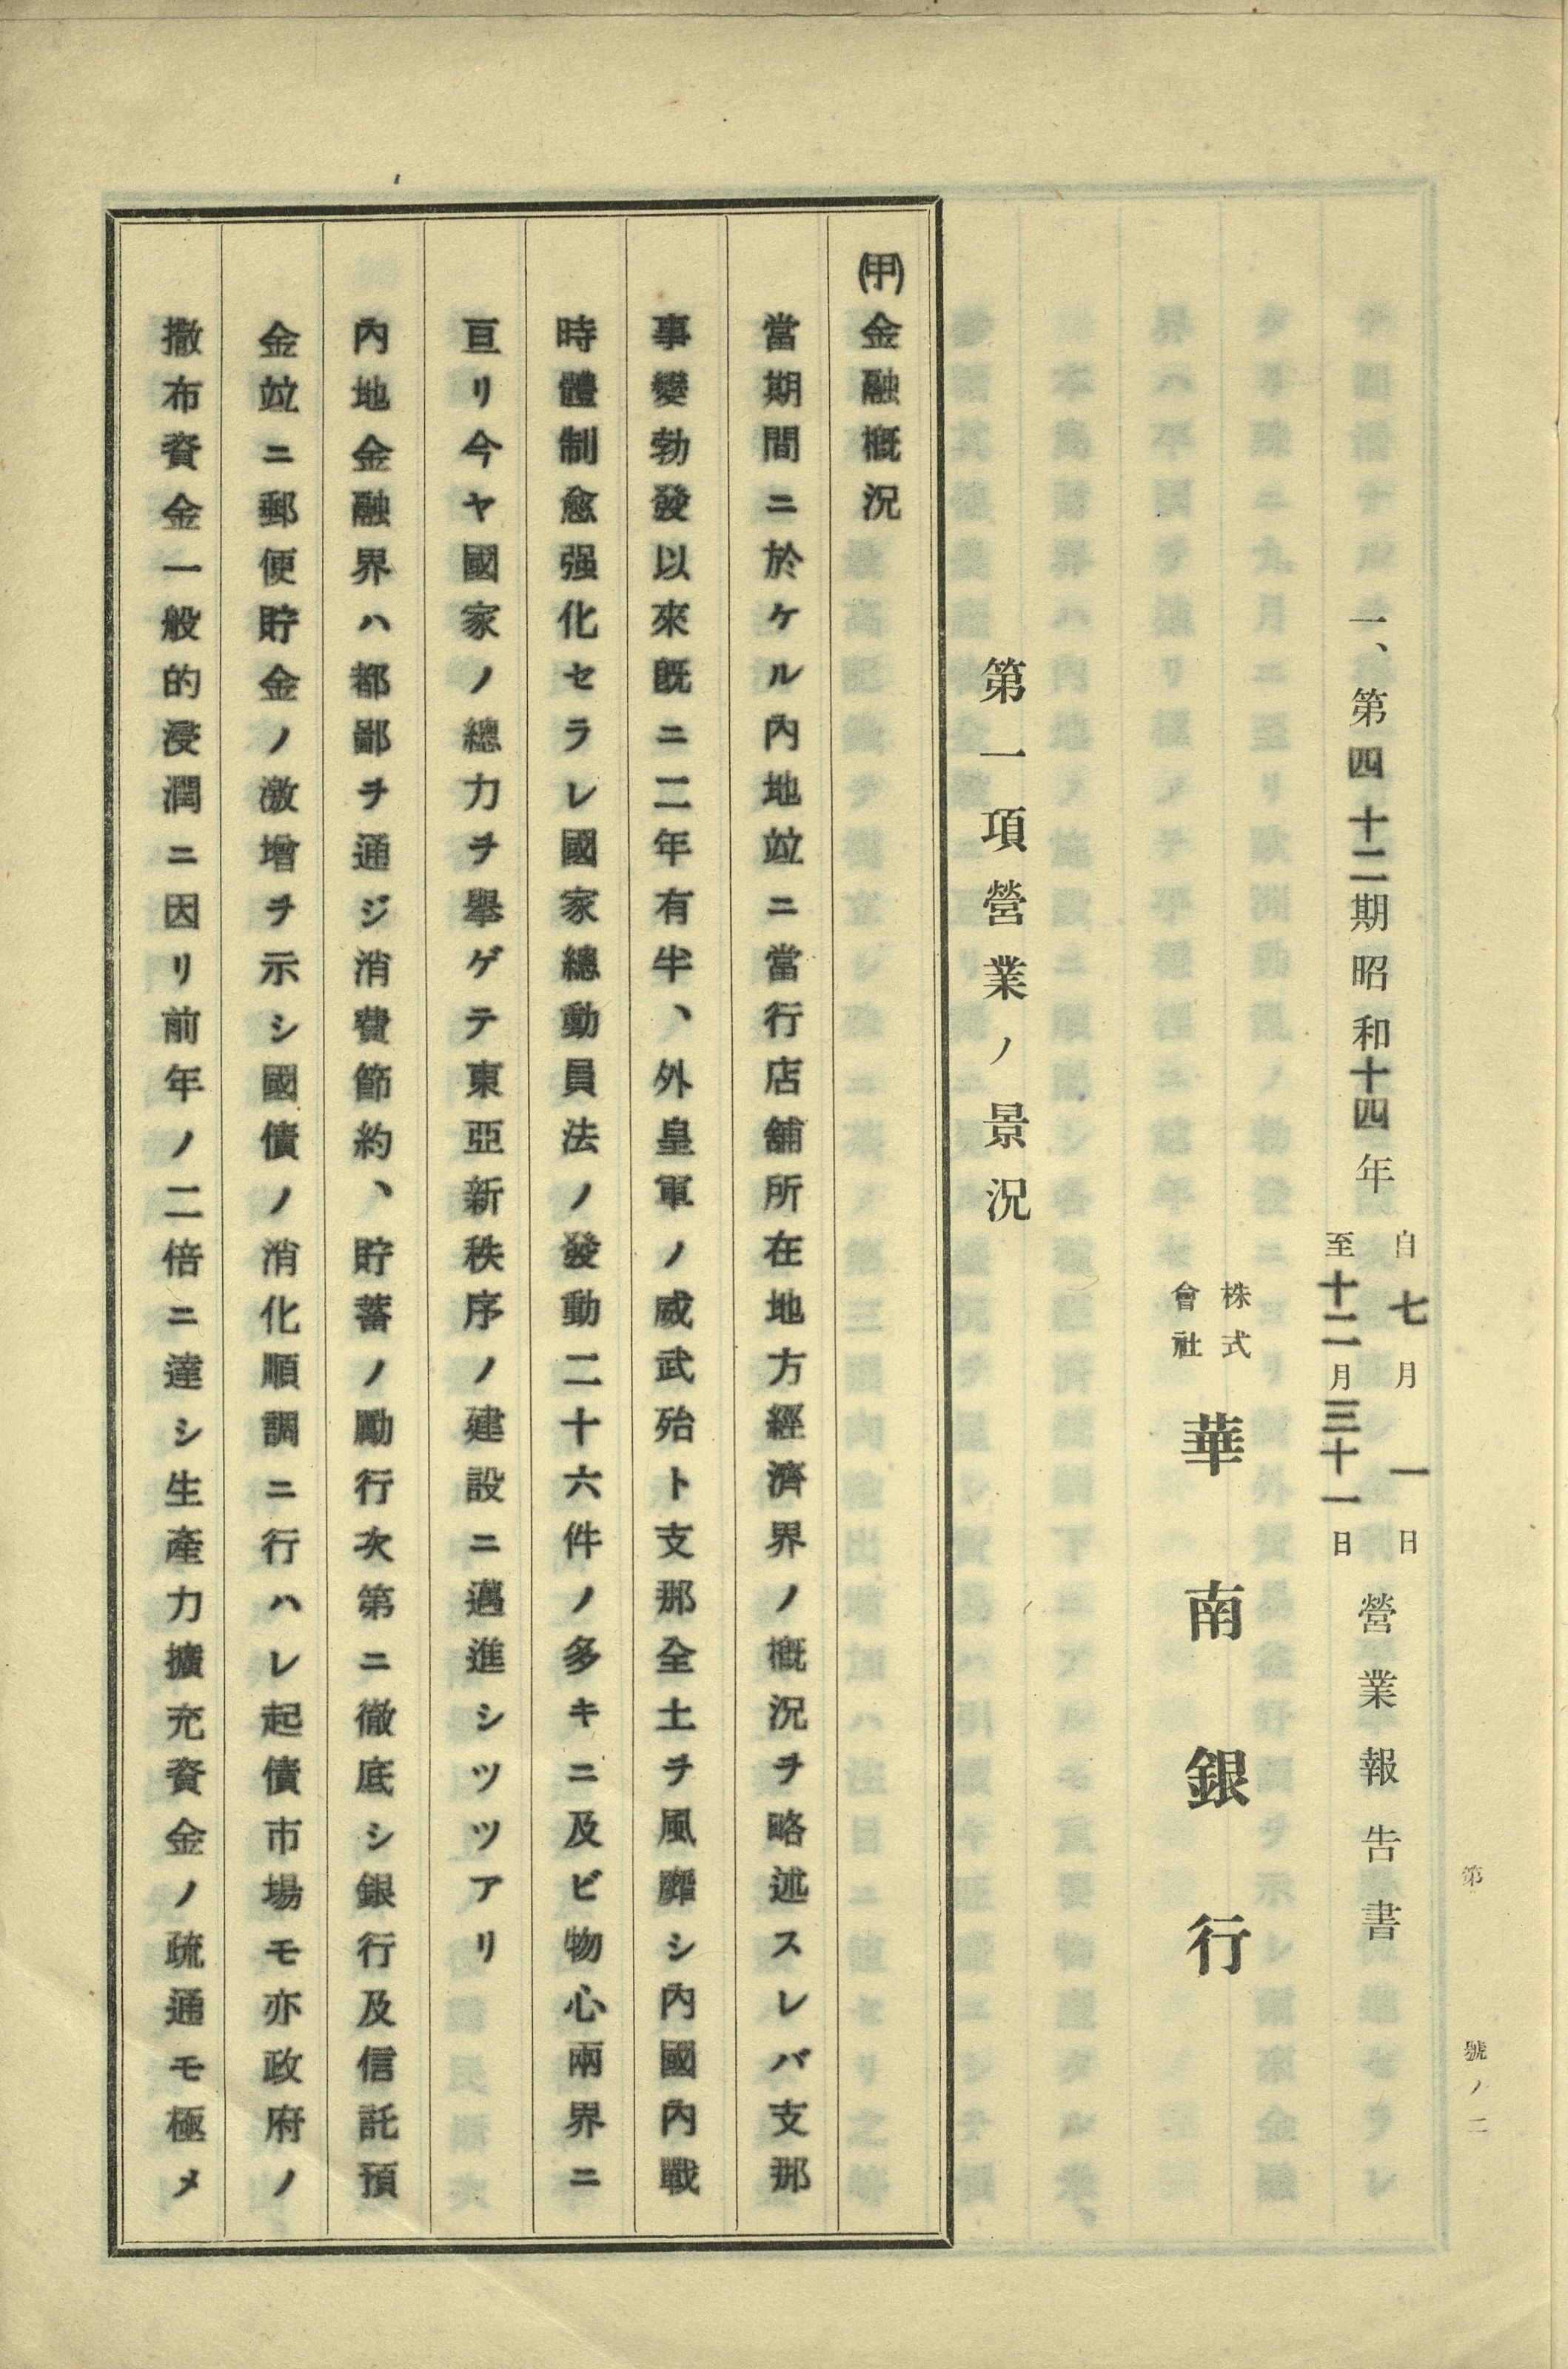 第 號ノ二
一、第四十二期昭和十四年自七月一日至十二月三十一日營業報告書
株式會社華南銀行
第一項營業ノ景況
(甲)金融概況
當期間ニ於ケル內地竝ニ當行店舖所在地方經濟界ノ概況ヲ略述スレバ支那
事變勃發以來旣ニ二年有半、外皇軍ノ威武殆ト支那全土ヲ風靡シ內國內戰
時體制愈强化セラレ國家總動員法ノ發動二十六件ノ多キニ及ビ物心兩界ニ
亘リ今ヤ國家ノ總力ヲ擧ゲテ東亞新秩序ノ建設ニ邁進シツツアリ
內地金融界ハ都鄙ヲ通ジ消費節約、貯蓄ノ勵行次第ニ徹底シ銀行及信託預
金竝ニ郵便貯金ノ激增ヲ示シ國債ノ消化順調ニ行ハレ起債市場モ亦政府ノ
撒布資金一般的浸潤ニ因リ前年ノ二倍ニ達シ生產力擴充資金ノ疏通モ極メ